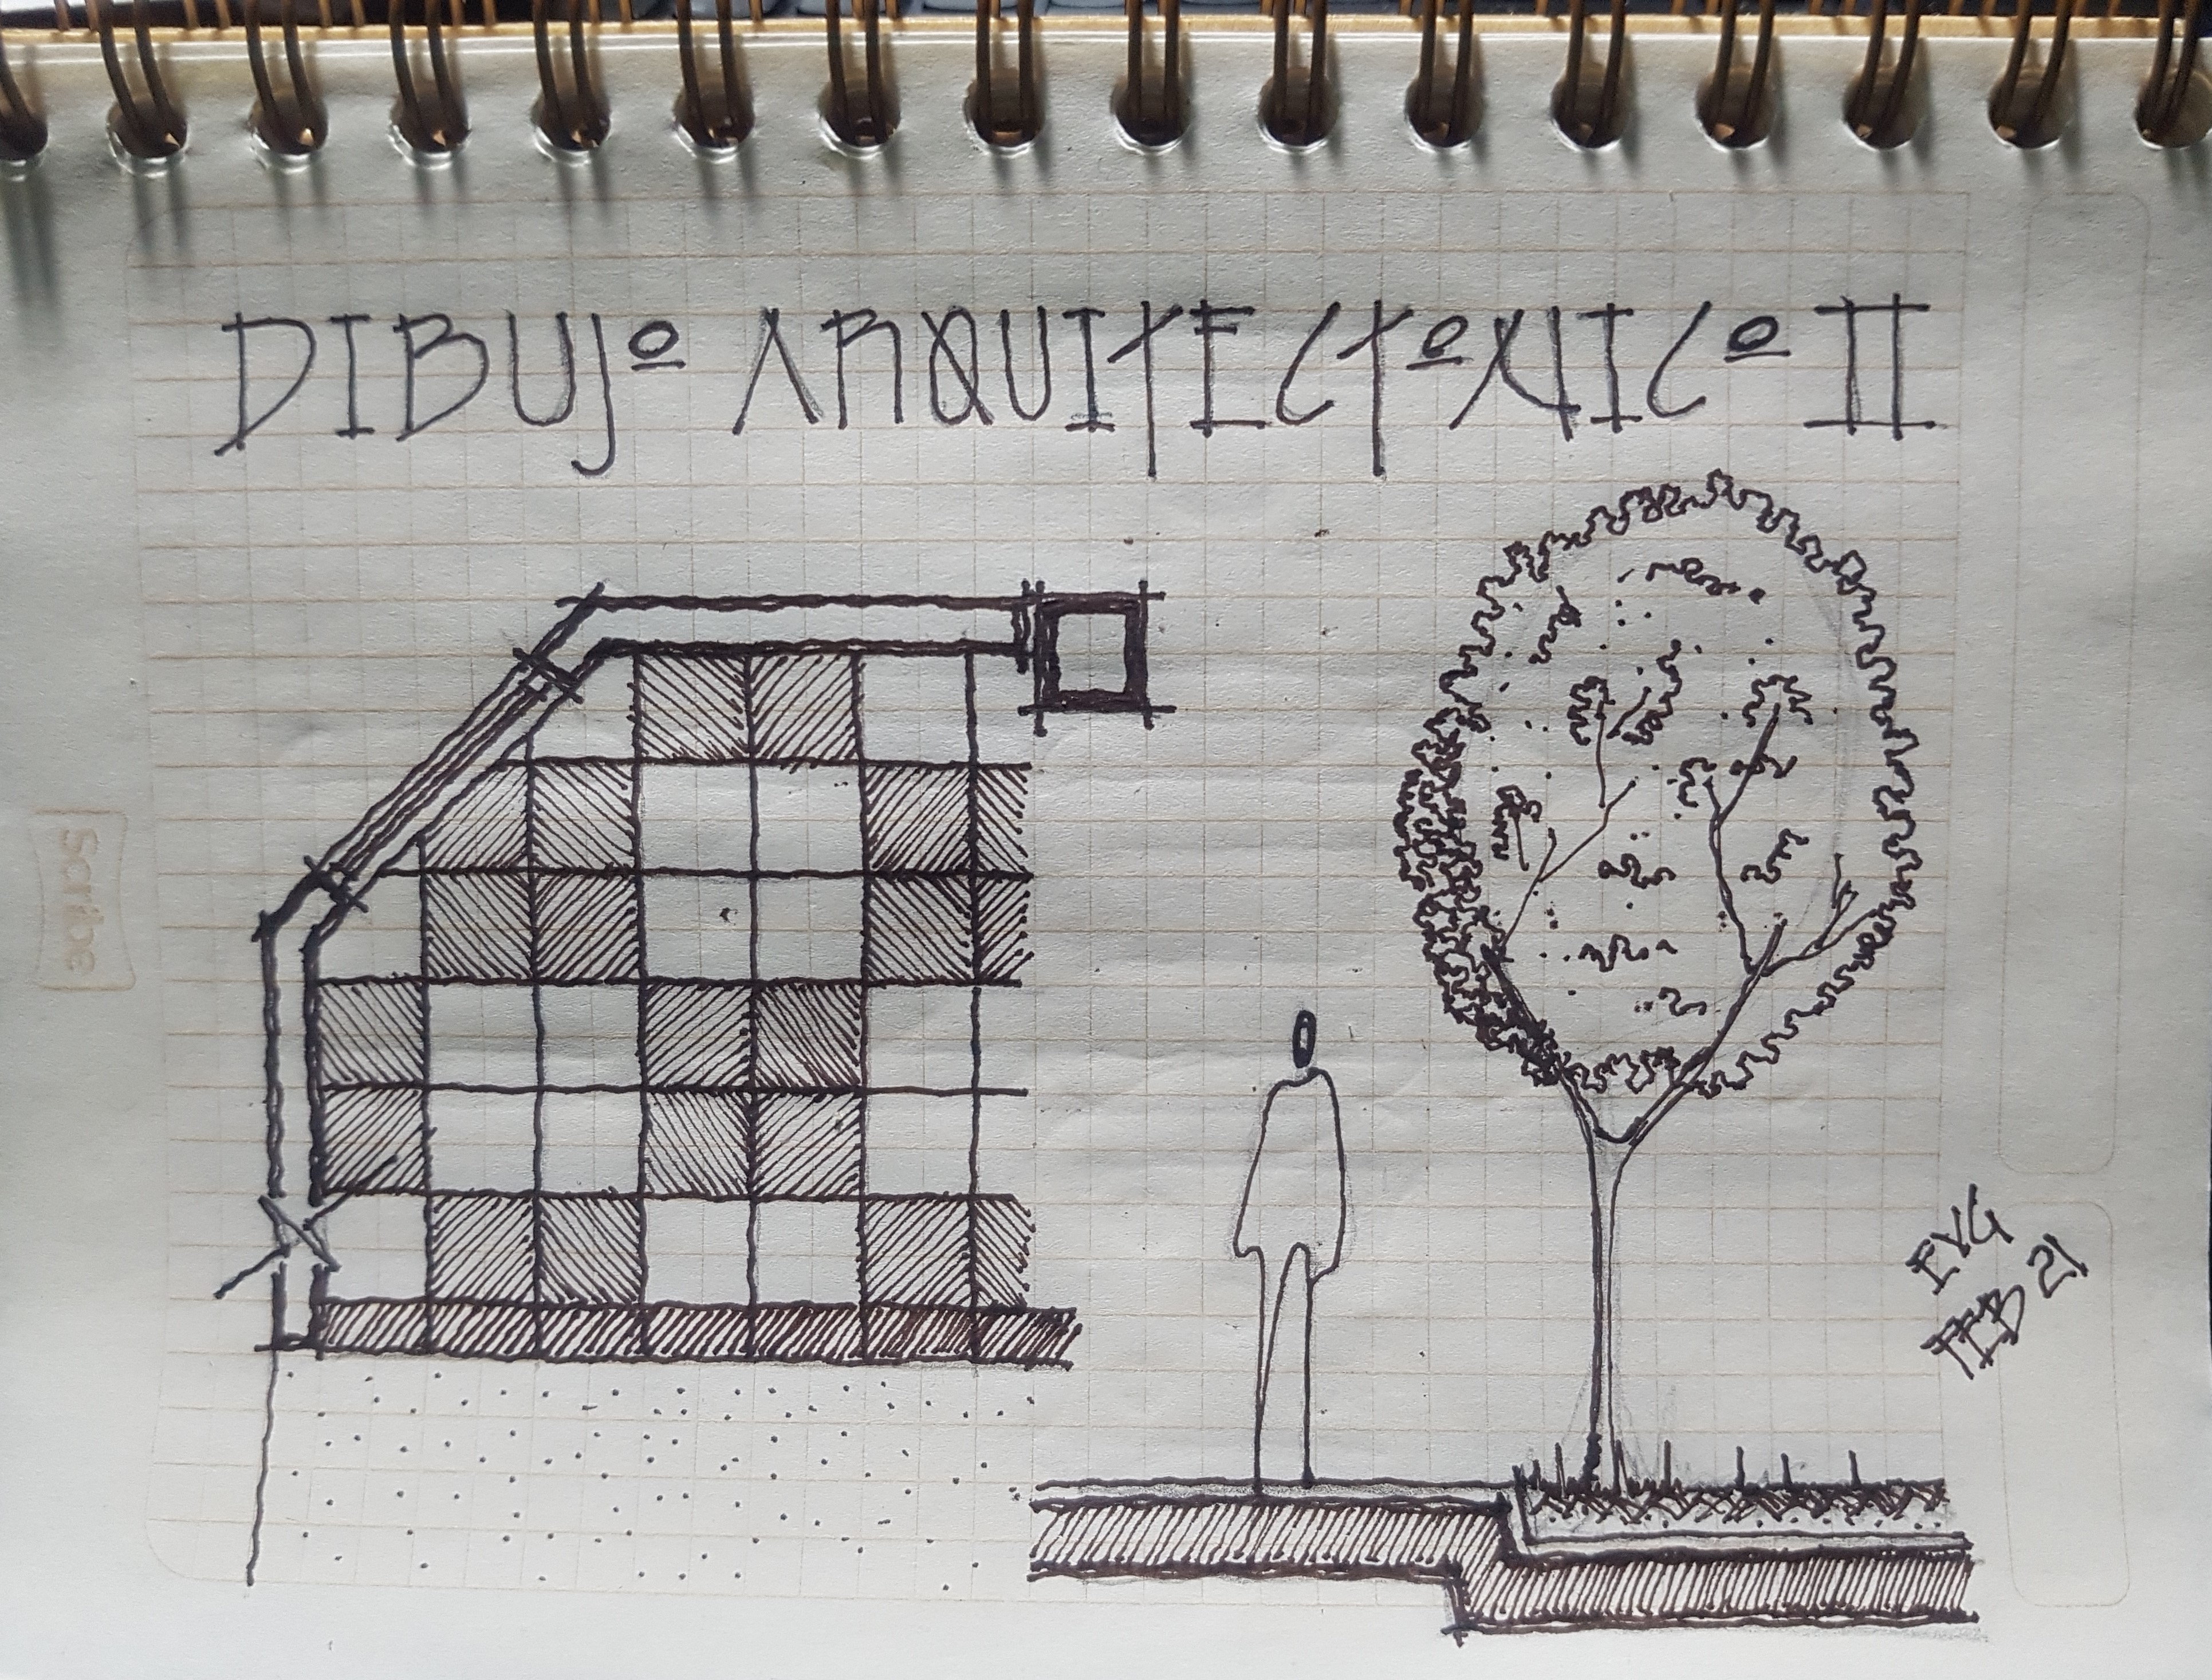 DIBUJO ARQUITECTONICO II
Scribe
EVG
FEB 21